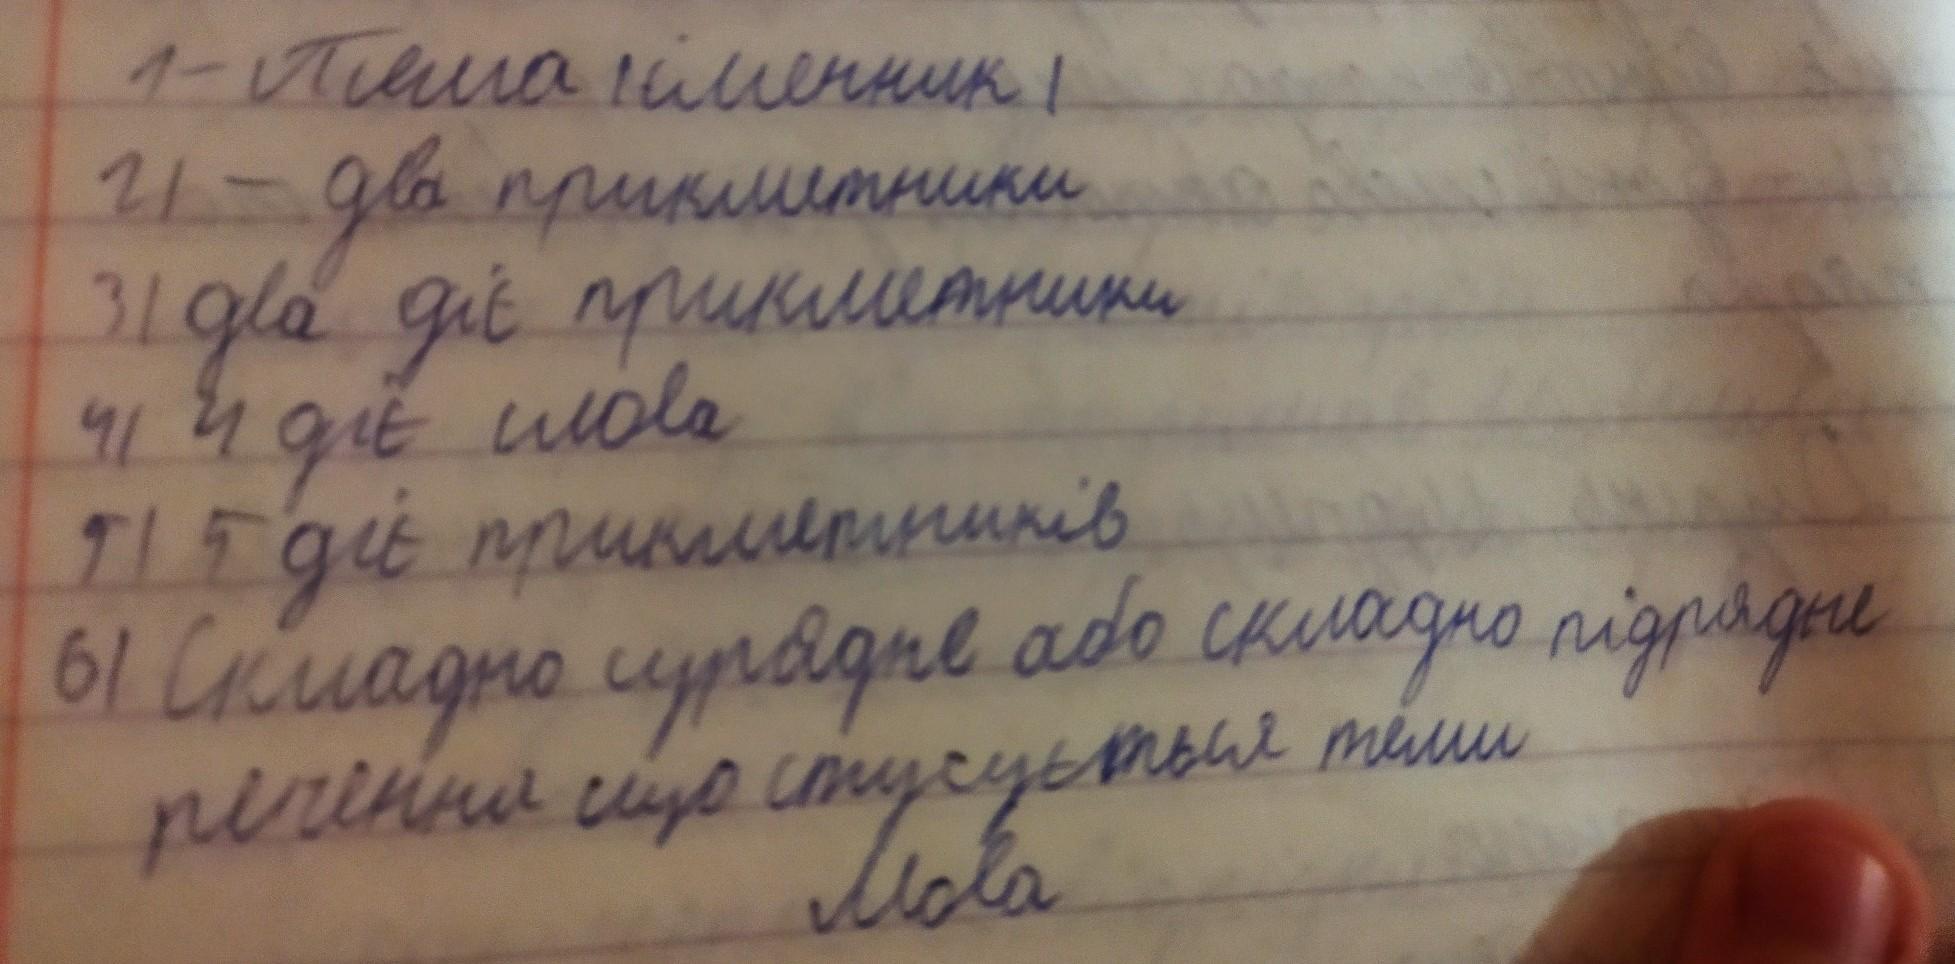 1- Тема (іменник)
2) - два прикметники
3) два діє прикметники
4) 4 діє слова
5) 5 діє прикметників
6) Складно сурядне або складно підрядне
речення що стусується теми
Мова